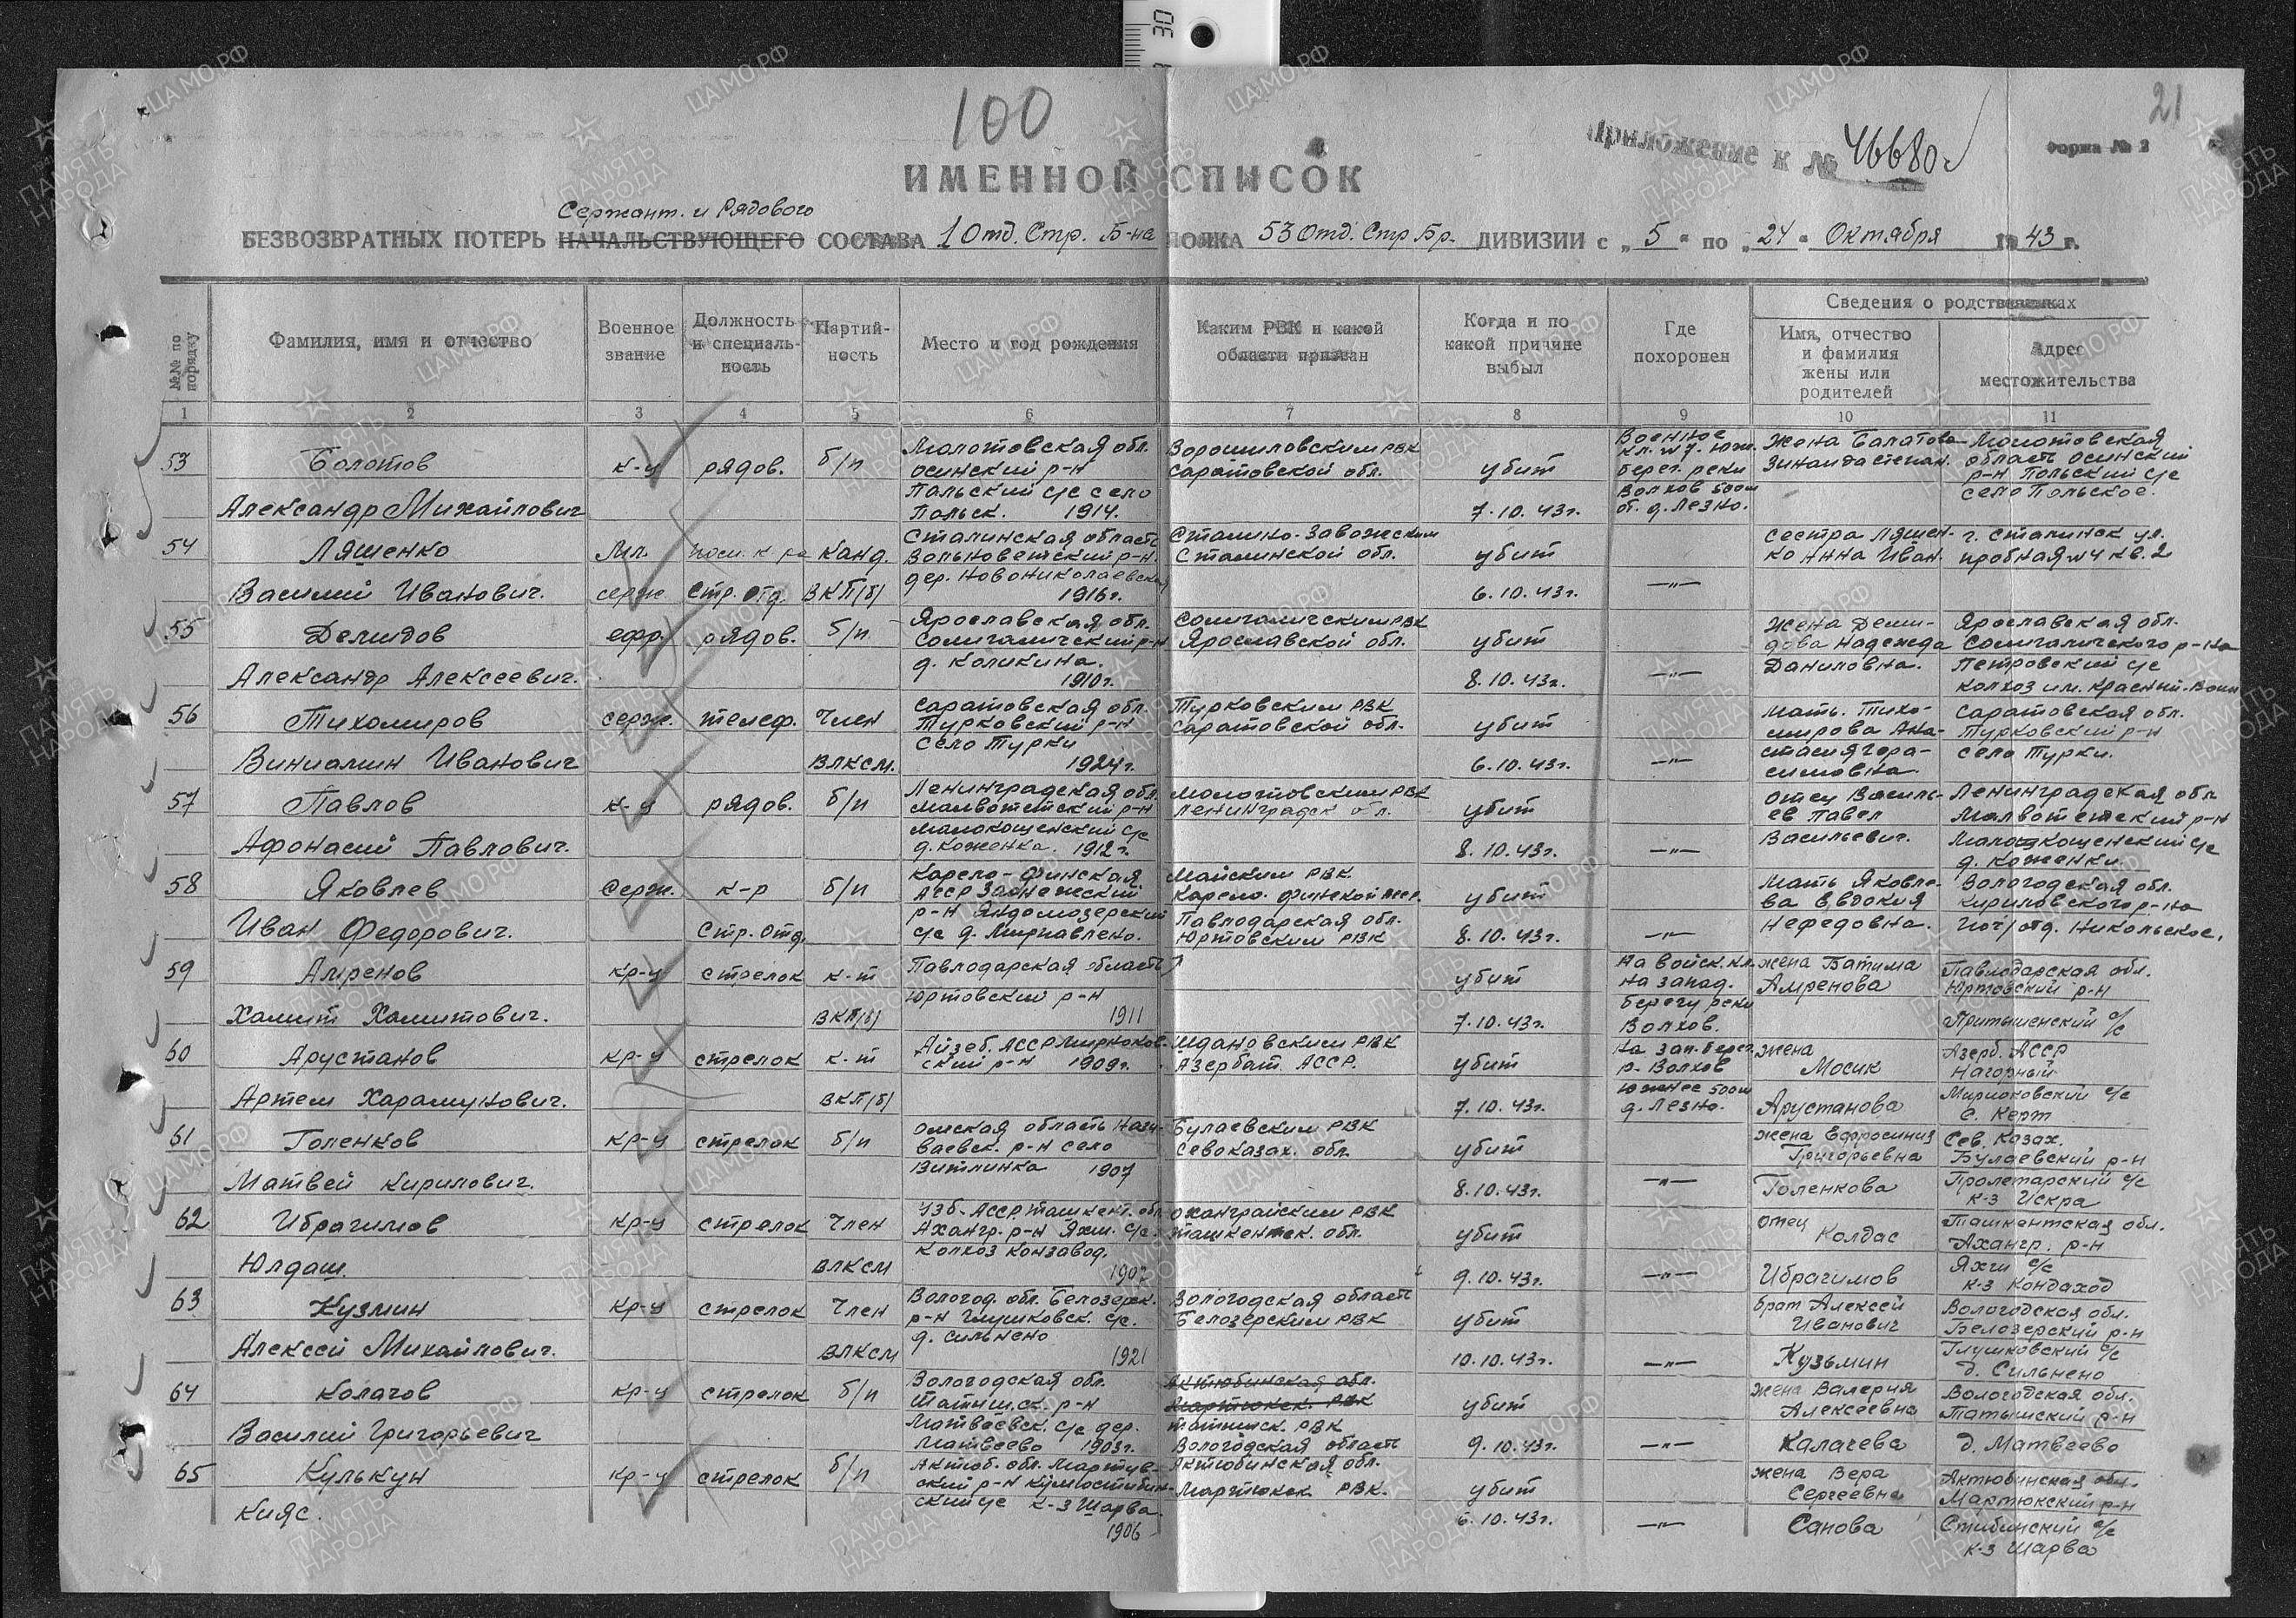 100
21
Приложение к № 46680с
Форма № 2
ИМЕННОЙ СПИСОК
Сержант. и Рядового
БЕЗВОЗВРАТНЫХ ПОТЕРЬ НАЧАЛЬСТВУЮЩЕГО СОСТАВА 1 Отд. Стр. Б-на ПОЛКА 53 Отд. Стр Бр. ДИВИЗИИ с „5“ по „24“ Октября 1943 г.
№№ по порядку
Фамилия, имя и отчество
Военное звание
Должность и специальность
Партийность
Место и год рождения
Каким РВК и какой области призван
Когда и по какой причине выбыл
Где похоронен
Сведения о родственниках
Имя, отчество и фамилия жены или родителей
Адрес местожительства
1 2 3 4 5 6 7 8 9 10 11
53 Болотов к-ц рядов. б/п
Александр Михайлович
Молотовская обл.
осинский р-н
Польский с/с село
Польск. 1914.
Ворошиловским РВК
Саратовской обл.
убит
7.10.43г.
Военное
кл. №7. Юж.
берег. реки
Волхов 500м
от. д. Лезно.
Жена Балатова
Зинаида Степан.
Молотовская
область осинский
р-н Польский с/с
село Польское.
54 Ляшенко Мл. пом. к-ра канд.
Василий Иванович. серж стр. отд. ВКП/б/
Сталинская область
Вольноветский р-н.
дер. Новониколаевская
1916г.
Сталино-Заводским
Сталинской обл.
убит
6.10.43г.
—"—
сестра Ляшен-
ко Анна Иван.
г. Сталинск ул.
пробная №4 кв. 2
55 Демидов ефр. рядов. б/п
Александр Алексеевич.
Ярославская обл.
Солигаличский р-н
д. Коликина.
1910г.
Солигаличским РВК
Ярославской обл.
убит
8.10.43г.
—"—
Жена Деми-
дова Надежда
Даниловна.
Ярославская обл.
Солигаличского р-на
Петровский с/с
колхоз им. Красный-Воин
56 Тихомиров серж. телеф. Член
Виниамин Иванович ВЛКСМ.
Саратовская обл.
Турковский р-н
село Турки
1924г.
Турковским РВК
Саратовской обл.
убит
6.10.43г.
—"—
Мать. Тихо-
мирова Ана-
стасия Гера-
симовна.
Саратовская обл.
Турковский р-н
село Турки.
57 Павлов к-ц рядов. б/п
Афонасий Павлович.
Ленинградская обл.
Малвотетский р-н
Малокощенский с/с
д. Коженка. 1912г.
Молотовским РВК
Ленинградск обл.
убит
8.10.43г.
—"—
отец Василь-
ев Павел
Васильевич.
Ленинградская обл
Малвотетский р-н
Малокощенский с/с
д. Коженки.
58 Яковлев Серж. к-р б/п
Иван Федорович. Стр. Отд.
Карело-Финская
АССР Заонежский
р-н Яндомозерский
с/с д.
Майским РВК
Карело-Финской АССР.
Павлодарская обл.
Юртовским РВК
убит
8.10.43г.
—"—
Мать Яковле-
ва Евдокия
Нефедовна.
Вологодская обл.
Кириловского р-на
поч/отд. Никольское.
59 Амренов кр-ц стрелок к-т
Хамит Хамитович. ВКП/б/
Павлодарская область
Юртовский р-н
1911
убит
7.10.43г.
На войск. кл.
на запад.
берегу реки
Волхов.
жена Батима
Амренова
Павлодарская обл.
Юртовский р-н
Притышенский с/с
60 Арустанов кр-ц стрелок к-т
Артем Харамунович. ВКП/б/
Айзеб. АССР Мирноков-
ский р-н 1909г.
Ждановским РВК
Азербат. АССР.
убит
7.10.43г.
На зап. берег.
р. Волхов
Южнее 500м
д. Лезно.
жена
Мосик
Арустанова
Азерб. АССР
Нагорный
Мирноковский с/с
с. Керт
61 Голенков кр-ц стрелок б/п
Матвей Кирилович.
Омская область Нази-
ваевск. р-н село
Витлинка 1907
Булаевским РВК
Севоказах. обл.
убит
8.10.43г.
—"—
жена Ефросиния
Григорьевна
Голенкова
Сев. Казах.
Булаевский р-н
Пролетарский с/с
к-з Искра
62 Ибрагимов кр-ц стрелок Член
Юлдаш. ВЛКСМ
Узб. АССР Ташкент. обл
Ахангр. р-н Яхш. с/с.
Колхоз Конзавод.
1907
Оханграйским РВК
Ташкентск. обл.
убит
9.10.43г.
—"—
отец
Колдас
Ибрагимов
Ташкентская обл.
Ахангр. р-н
Яхш с/с
к-з Кондаход
63 Кузмин кр-ц стрелок Член
Алексей Михайлович. ВЛКСМ
Вологод. обл. Белозерск.
р-н Глушковск. с/с.
д. Сильнено
1921
Вологодская область
Белозерским РВК
убит
10.10.43г.
—"—
брат Алексей
Иванович
Кузьмин
Вологодская обл.
Белозерский р-н
Глушковский с/с
д. Сильнено
64 Колачов кр-ц стрелок б/п
Василий Григорьевич
Вологодская обл.
Татыш.ск. р-н
Матвеевск. с/с дер.
Матвеево 1903г.
Актюбинская обл.
Мартюкск. РВК
Татышск. РВК
Вологодская область
убит
9.10.43г.
—"—
жена Валерия
Алексеевна
Калачева
Вологодская обл.
Татышский р-н
д. Матвеево
65 Кулькун кр-ц стрелок б/п
Кияс.
Актюб. обл. Мартук-
ский р-н
ский с/с к-з Шарва.
1906
Актюбинская обл.
Мартюкск РВК.
убит
6.10.43г.
—"—
жена Вера
Сергеевна
Санова
Актюбинская обл.
Мартюкский р-н
Стибинский с/с
к-з Шарва